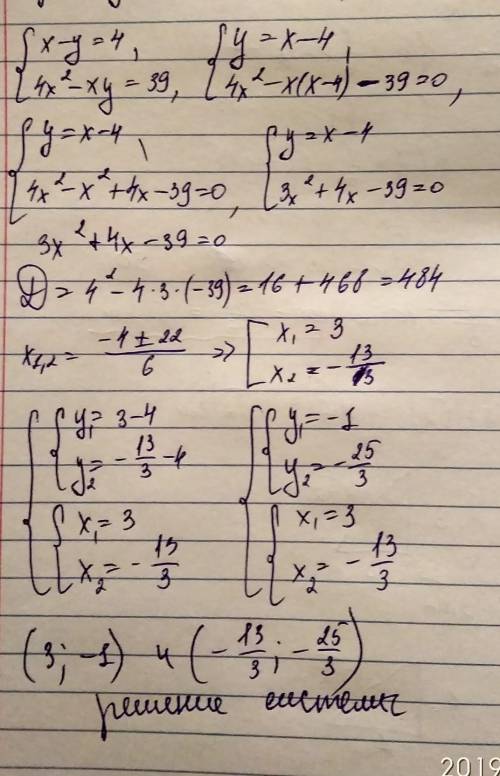 { x-y=4, { y=x-4,
{ 4x²-xy=39, { 4x²-x(x-4)-39=0,
{ y=x-4, { y=x-4
{ 4x²-x²+4x-39=0, { 3x²+4x-39=0
3x²+4x-39=0
D=4²-4·3·(-39)=16+468=484
x₁,₂ = (-4±22)/6 => [ x₁=3
[ x₂=-13/3
{ { y₁=3-4 { { y₁=-1
{ { y₂=-13/3-4 { { y₂=-25/3
{ { x₁=3 { { x₁=3
{ { x₂=-13/3 { { x₂=-13/3
(3;-1) и (-13/3;-25/3)
решение системы
2019